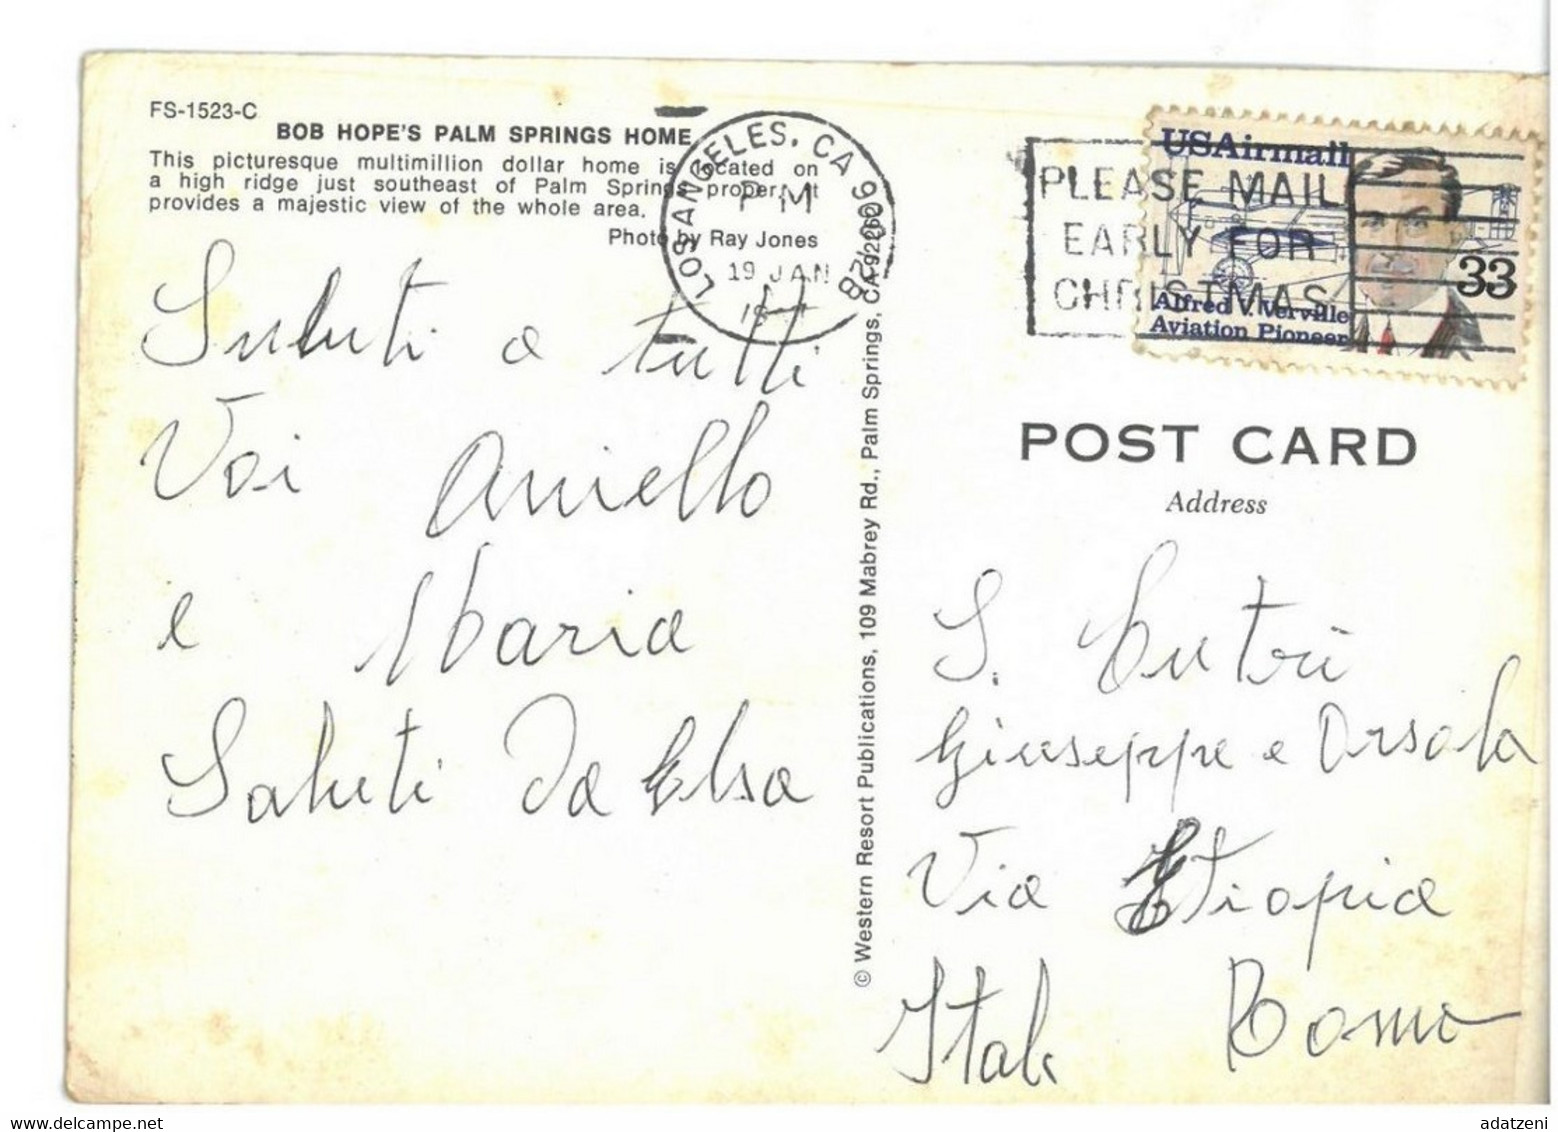 FS-1523-C
BOB HOPE'S PALM SPRINGS HOME
This picturesque multimillion dollar home is located on
a high ridge just southeast of Palm Springs proper. It
provides a majestic view of the whole area.
Photo by Ray Jones
LOS ANGELES, CA 900
P M
19 JAN
PLEASE MAIL
EARLY FOR
CHRISTMAS
USAirmail
33
Alfred V. Verville
Aviation Pioneer
Saluti a tutti
Voi Aniello
e Maria
Saluti Da Elsa
© Western Resort Publications, 109 Mabrey Rd., Palm Springs, CA 92260
P28
POST CARD
Address
S. Cutrì
Giuseppe e Orsola
Via Etiopia
Itali Roma
www.delcampe.net
adatzeni